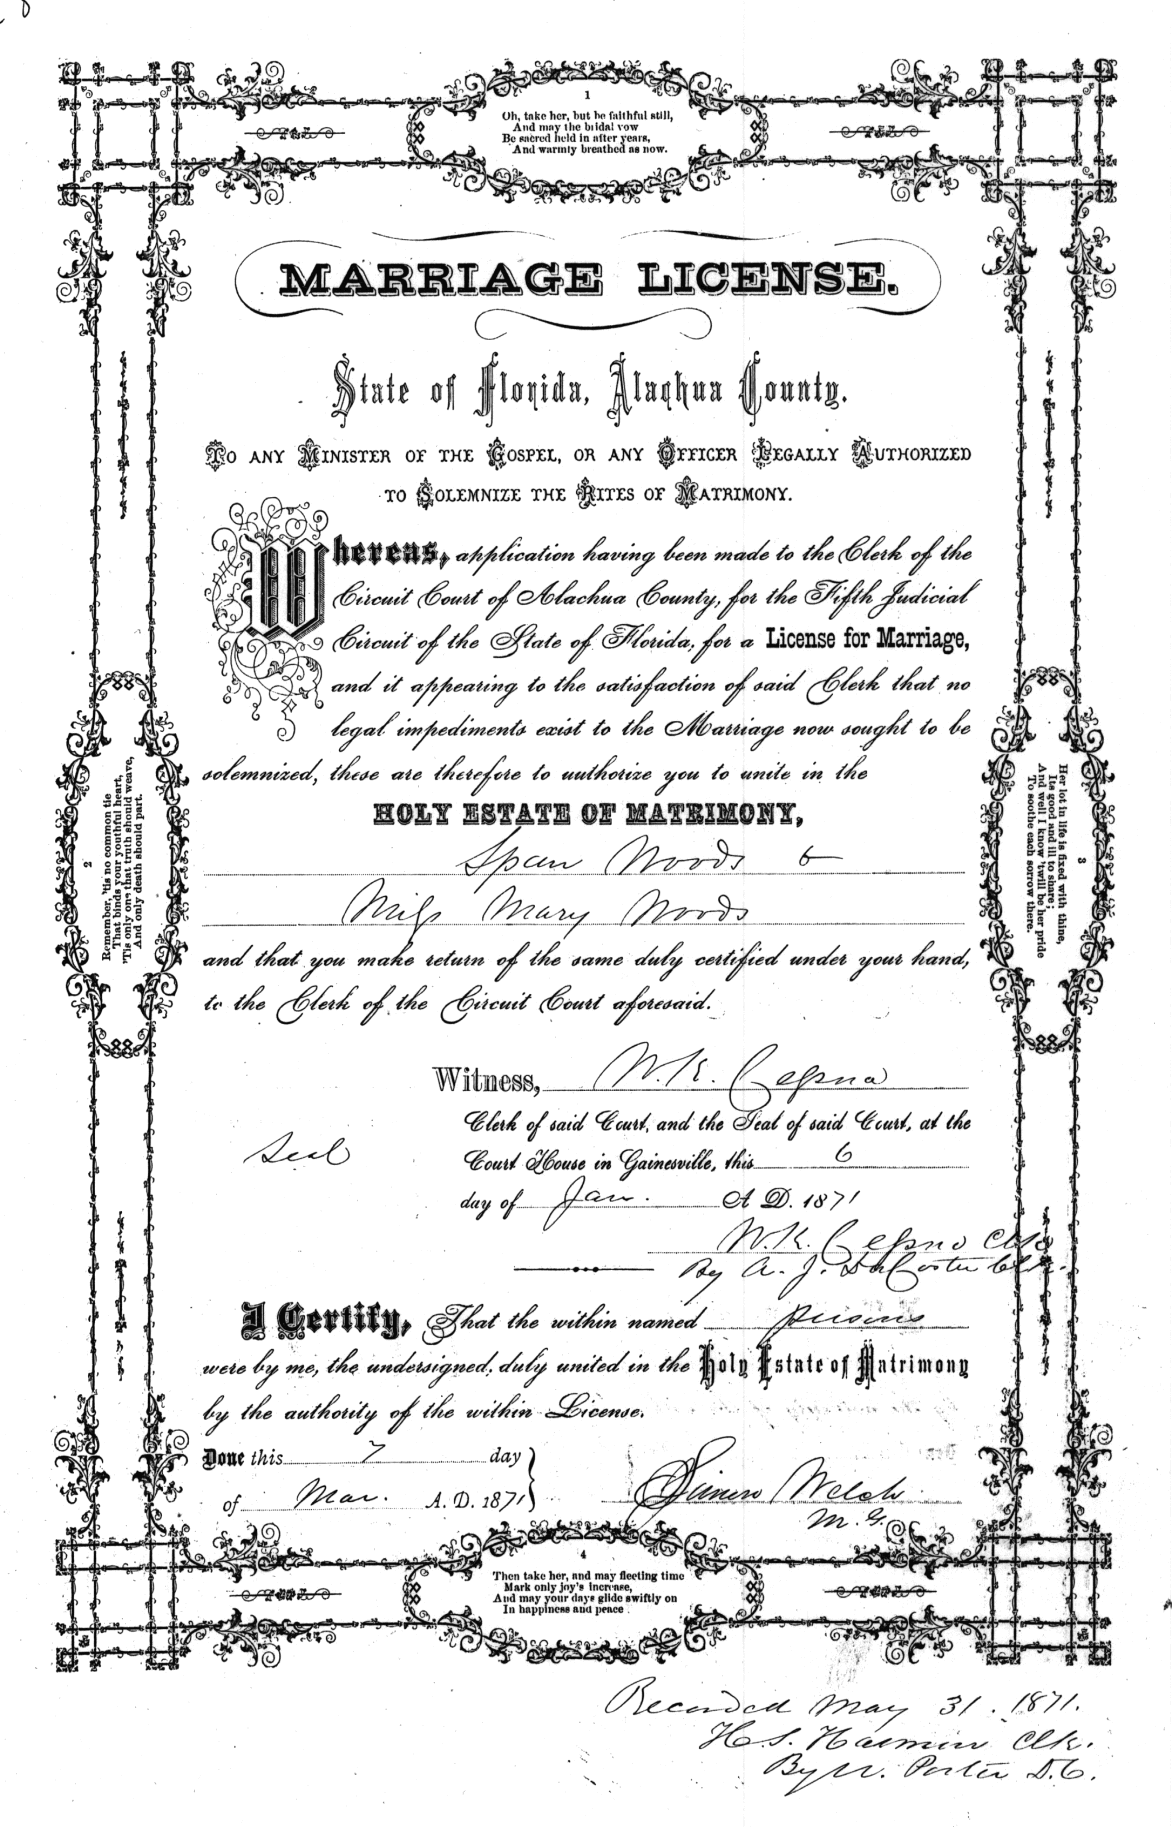 1
Oh, take her, but be faithful still,
And may the bridal vow
Be sacred held in after years,
And warmly breathed as now.
MARRIAGE LICENSE.
State of Florida, Alachua County.
TO ANY MINISTER OF THE GOSPEL, OR ANY OFFICER LEGALLY AUTHORIZED
TO SOLEMNIZE THE RITES OF MATRIMONY.
Whereas, application having been made to the Clerk of the
Circuit Court of Alachua County, for the Fifth Judicial
Circuit of the State of Florida, for a License for Marriage,
and it appearing to the satisfaction of said Clerk that no
legal impediments exist to the Marriage now sought to be
solemnized, these are therefore to authorize you to unite in the
HOLY ESTATE OF MATRIMONY,
Span Woods &
Miss Mary Woods
and that you make return of the same duly certified under your hand,
to the Clerk of the Circuit Court aforesaid.
2
Remember, 'tis no common tie
That binds your youthful heart,
'Tis only one that truth should weave,
And only death should part.
3
Her lot in life is fixed with thine,
Its good and ill to share;
And well I know 'twill be her pride
To soothe each sorrow there.
Witness, W. K. Cessna
Clerk of said Court, and the Seal of said Court, at the
Seal
Court House in Gainesville, this 6
day of Jan. A D. 1871
W. K. Cessna Clk
By A. J. DaCosta
I Certify, That the within named persons
were by me, the undersigned, duly united in the Holy Estate of Matrimony
by the authority of the within License.
Done this 7 day
of Mar. A. D. 1871
Simon Welch
M. G.
4
Then take her, and may fleeting time
Mark only joy's increase,
And may your days glide swiftly on
In happiness and peace
Recorded May 31. 1871.
H. S. Harmon Clk.
By W. Porter D. C.